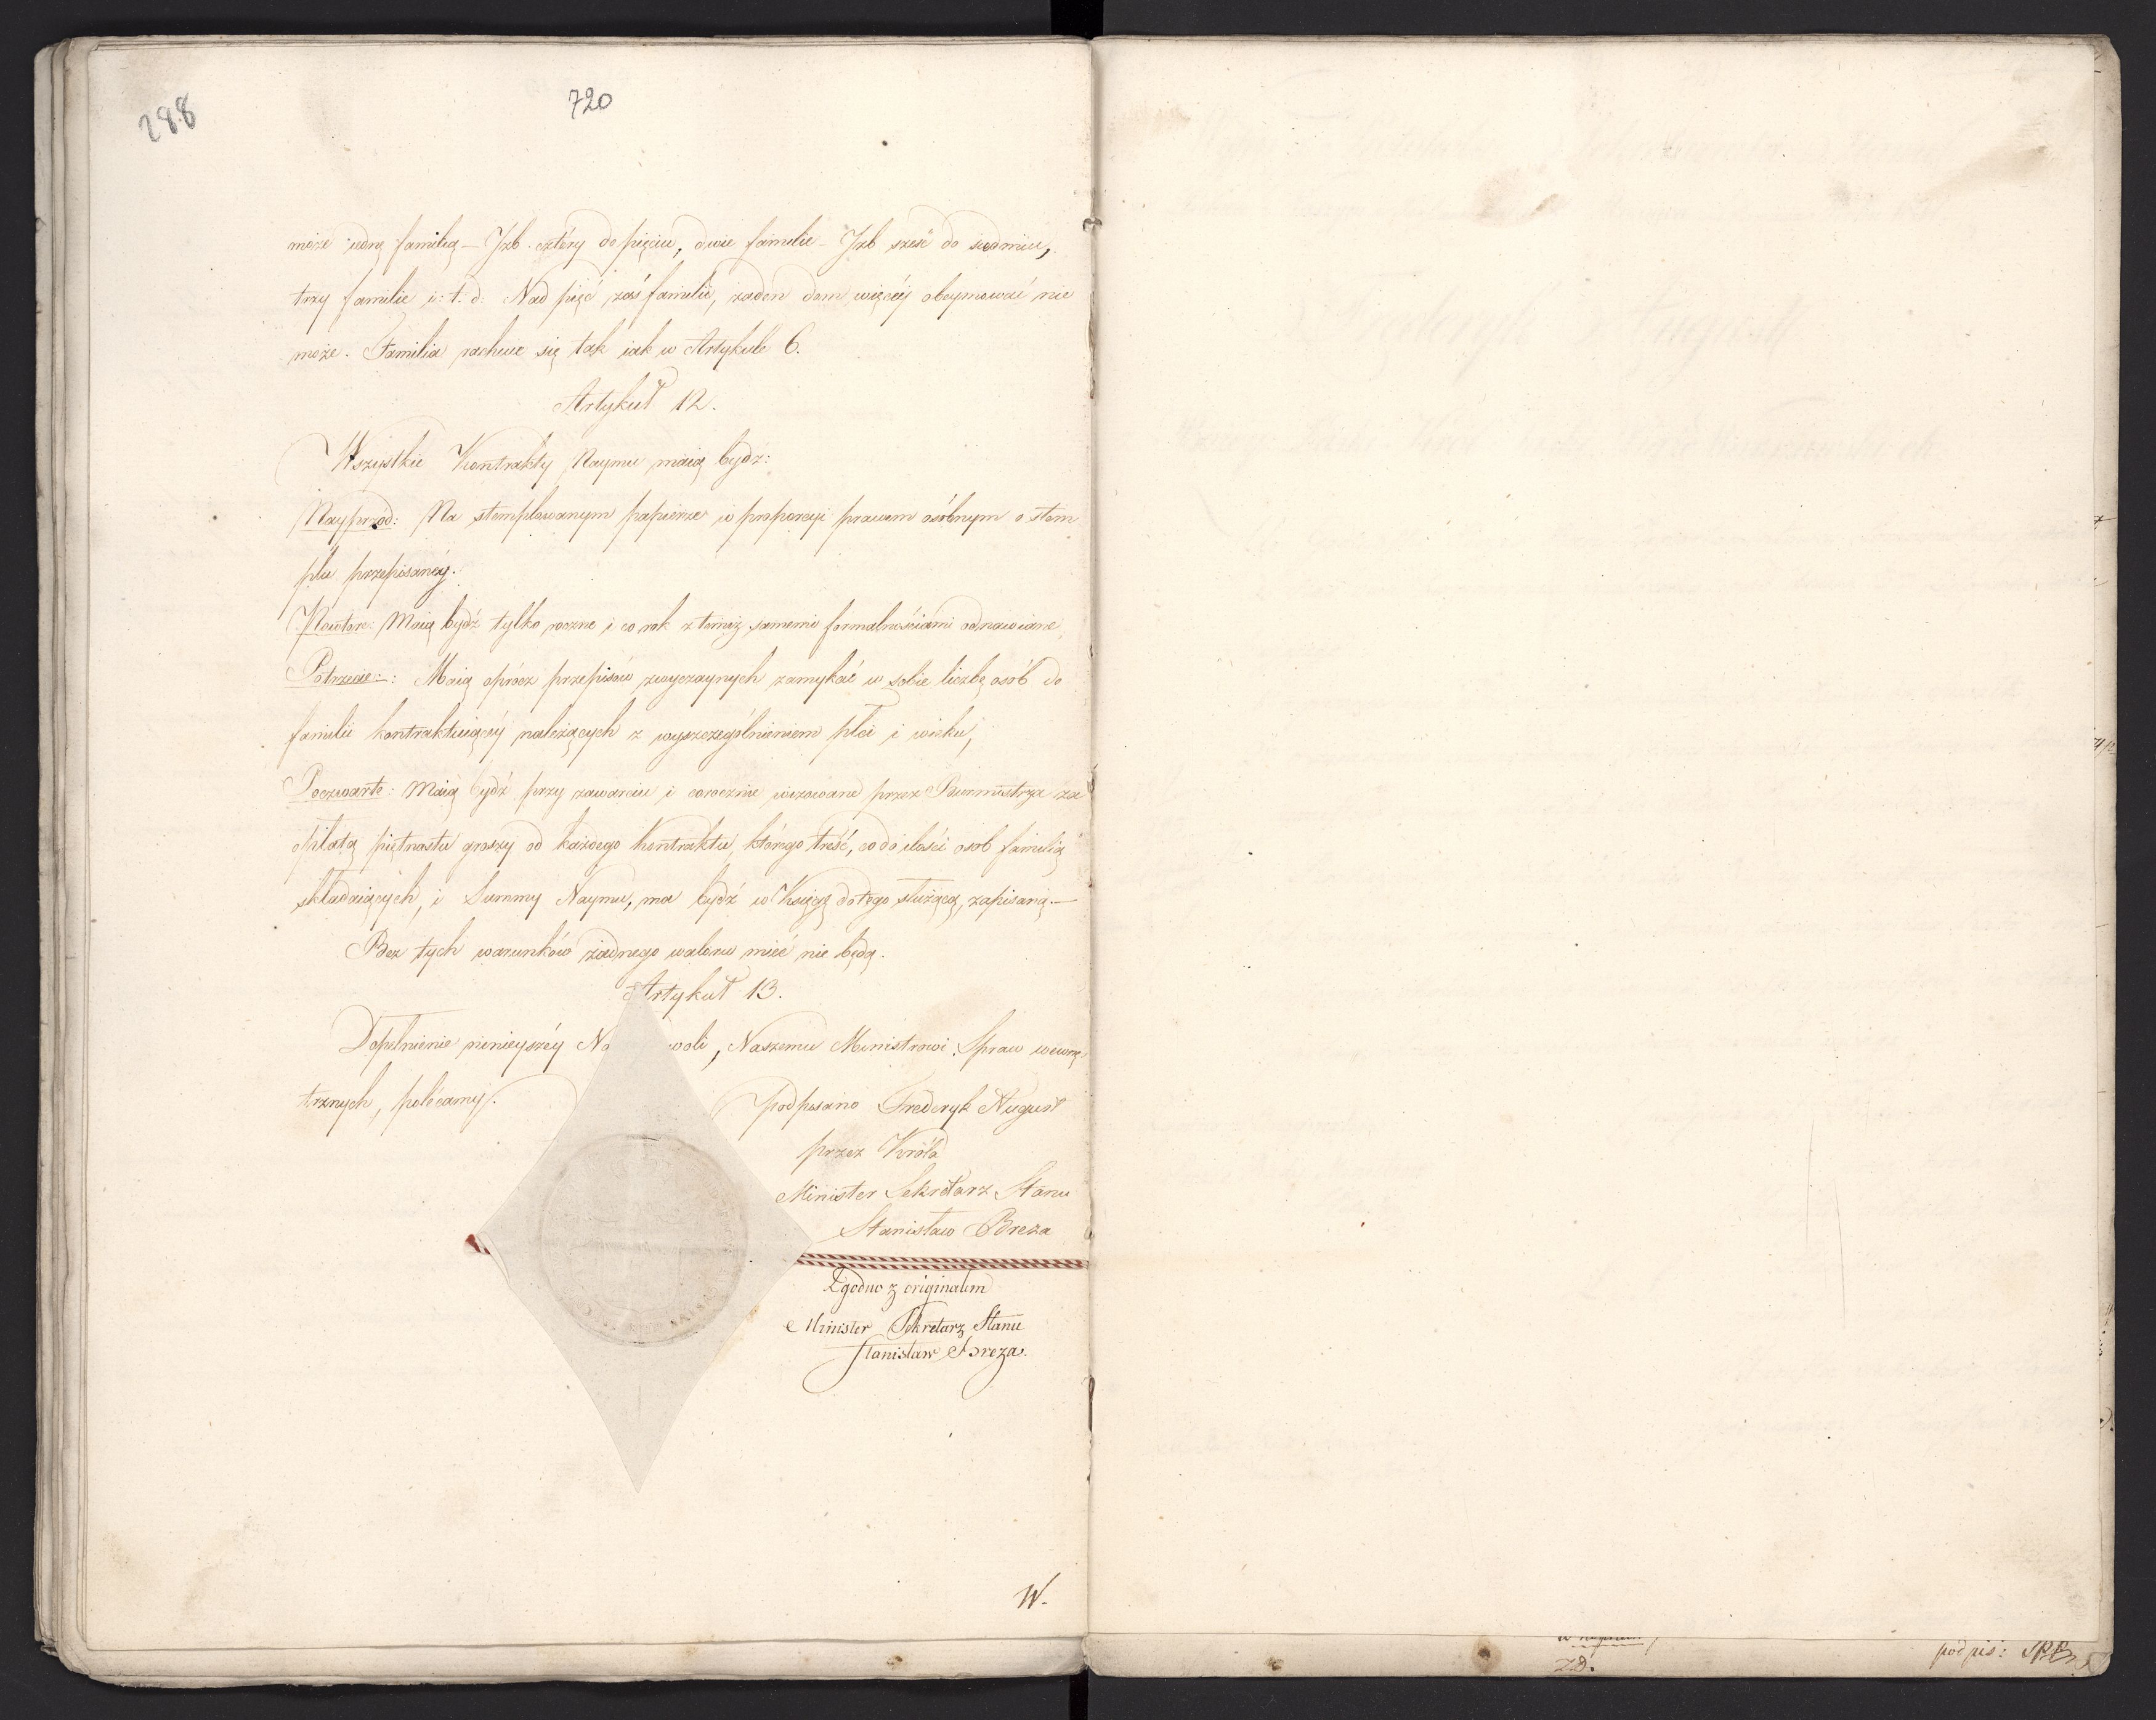 288
720
może iedną familią – Jzb cztéry do pięciu, dwie familie – Jzb sześć do siedmiu,
trzy familie i: t: d: Nad pięć zaś familii, żaden dom więcéy obeymować nie
może. Familia rachuie się tak iak w Artykule 6.
Artykuł 12.
Wszystkie Kontrakty Naymu maią bydź:
Nayprzod: Na stemplowanym papierze w proporcyi prawem osóbnym o stem
plu przepisanéy.
Powtore: Maią bydź tylko roczne i co rok z temiż samemi formalnościami odnawiane
Potrzecie: Maią oprócz przepisów zwyczaynych zamykać w sobie liczbę osób do
familii kontraktuiącéy należących z wyszczególnieniem płci i wieku,
Poczwarte: Maią bydź przy zawarciu i corocznie wizowane przez Burmistrza za
opłatą piętnastu groszy od każdego Kontraktu, którego treść, co do ilości osób familią
składaiących, i Summy Naymu, ma bydź w Księgę do tego służącą, zapisaną. –
Bez tych warunków żadnego waloru mieć nie będą.
Artykuł 13.
Dopełnienie ninieyszéy Na woli, Naszemu Ministrowi Spraw wewnę
trznych, polecamy.
podpisano Frederyk August
przez Króla
Minister Sekretarz Stanu
Stanisław Breza
Zgodno z originałem
Minister Sekretarz Stanu
Stanisław Breza.
W.
podpis: